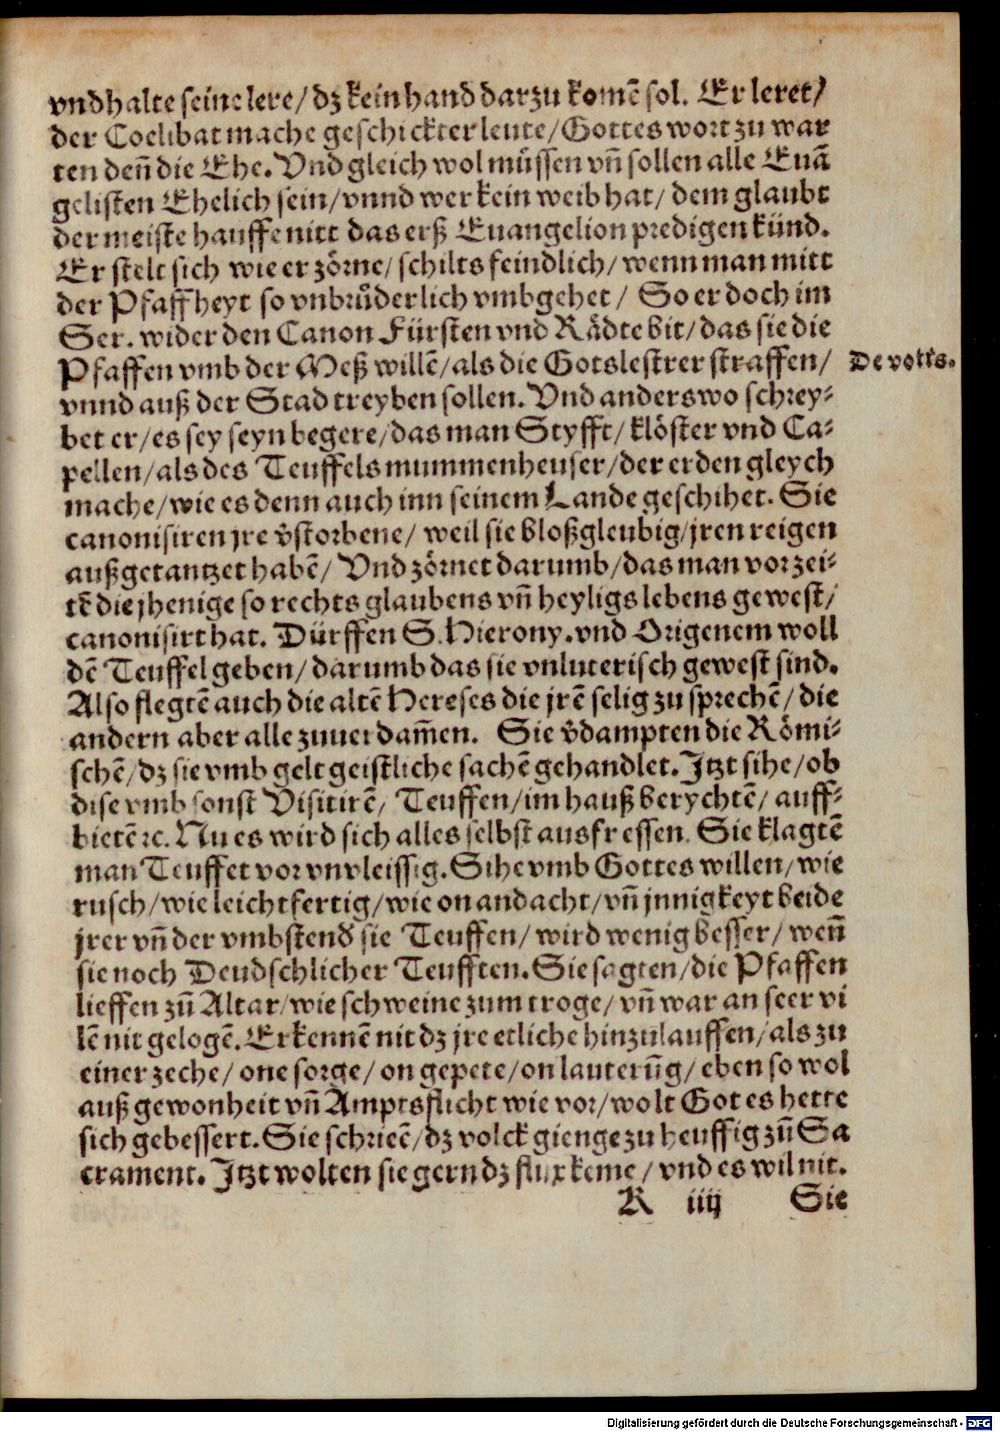 vnd halte seine lere/ dz kein hand darzu komẽ sol. Er leret/
der Coelibat mache geschickter leute/ Gottes wort zu war
ten deñ die Ehe. Vnd gleich wol müssen vñ sollen alle Euã
gelisten Ehelich sein/ vnnd wer kein weib hat/ dem glaubt
der meiste hauffe nitt das erß Euangelion predigen künd.
Er stelt sich wie er zörne/ schilts feindlich/ wenn man mitt
der Pfaffheyt so vnbrůderlich vmbgehet/ So er doch im
Ser. wider den Canon Fürsten vnd Rädte bit/ das sie die
Pfaffen vmb der Meß willẽ/ als die Gotslestrer straffen/
De votis.
vnnd auß der Stad treyben sollen. Vnd anderswo schrey-
bet er/ es sey seyn begere/ das man Styfft/ klöster vnd Ca-
pellen/ als des Teuffels mummenheuser/ der erden gleych
mache/ wie es denn auch inn seinem Lande geschihet. Sie
canonisiren jre v̊storbene/ weil sie bloßgleubig/ jren reigen
außgetantzet habẽ/ Vnd zörnet darumb/ das man vor zei-
tẽ die jhenige so rechts glaubens vñ heyligs lebens gewest/
canonisirt hat. Dürffen S. Hierony. vnd Origenem woll
dẽ Teuffel geben/ darumb das sie vnluterisch gewest sind.
Also flegtẽ auch die altẽ Hereses die jrẽ selig zu sprechẽ/ die
andern aber alle zuuerdam̃en. Sie v̊dampten die Römi-
schẽ/ dz sie vmb gelt geistliche sachẽ gehandlet. Jtzt sihe/ ob
dise vmb sonst Visitirẽ/ Teuffen/ im hauß berychtẽ/ auff-
bietẽ ꝛc. Nu es wird sich alles selbst ausfressen. Sie klagtẽ
man Teuffet vor vnvleissig. Sihe vmb Gottes willen/ wie
rusch/ wie leichtfertig/ wie on andacht/ vñ jnnigkeyt beide
jrer vñ der vmbstend sie Teuffen/ wird wenig besser/ weñ
sie noch Deudschlicher Teufften. Sie sagten/ die Pfaffen
lieffen zũ Altar/ wie schweine zum troge/ vñ war an seer vi
lẽ nit gelogẽ. Erkennẽ nit dz jre etliche hinzulauffen/ als zu
einer zeche/ one sorge/ on gepete/ on lauterũg/ eben so wol
auß gewonheit vñ Amptsflicht wie vor/ wolt Got es hette
sich gebessert. Sie schrieẽ/ dz volck gienge zu heuffig zũ Sa
crament. Jtzt wolten sie gern dz flux keme/ vnd es wil nit.
K iiij Sie
Digitalisierung gefördert durch die Deutsche Forschungsgemeinschaft - DFG